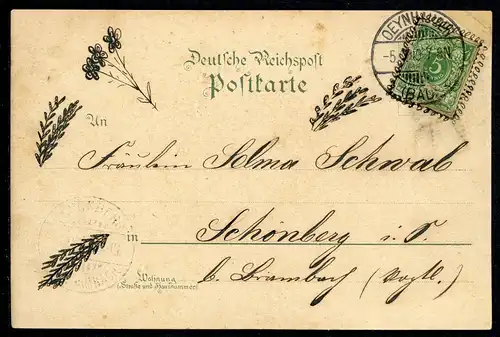 Deutsche Reichspost
Postkarte
OEYNH
5
An
Fräulein Selma Schwab
in Schönberg i. S.
b. Brambach (Vogtl.)
Wohnung
(Straße und Hausnummer)